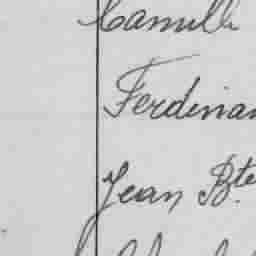 Camille
Ferdinan
Jean Bte